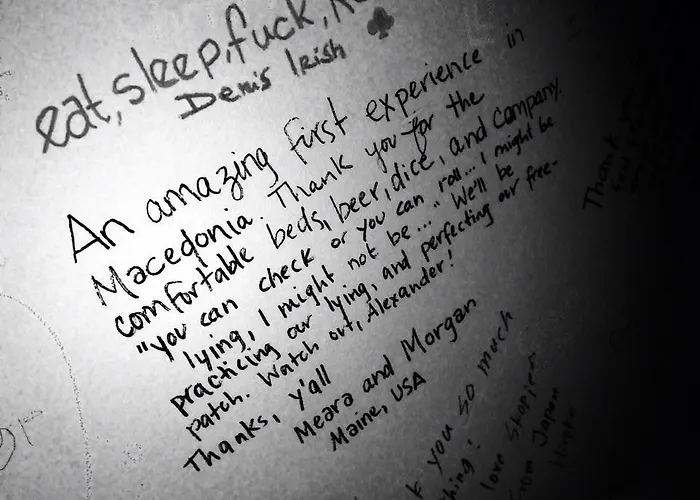 eat, sleep, fuck,
Denis Irish
An amazing first experience in
Macedonia. Thank you for the
comfortable beds, beer, dice, and company.
"You can check or you can roll... I might be
lying, I might not be..." We'll be
practicing our lying, and perfecting our free-
patch. Watch out, Alexander!
Thanks, y'all
Meara and Morgan
Maine, USA
you so much
love Skopje
from Japan
Thank